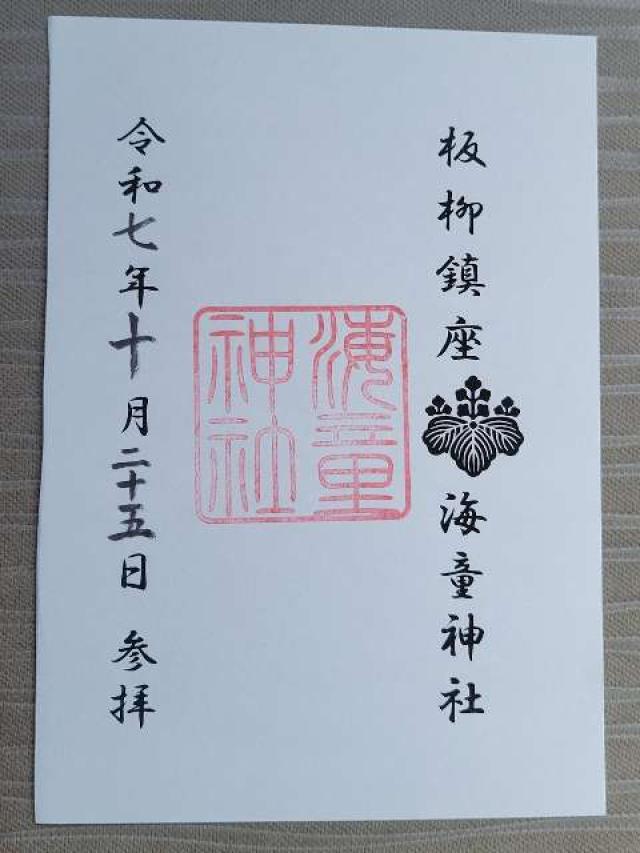 板柳鎮座 海童神社
海童
神社
令和七年十月二十五日 参拝